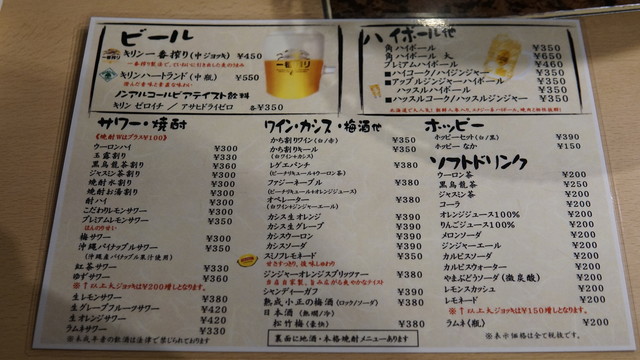 ビール
キリン一番搾り(中ジョッキ) ¥450
キリンハートランド(中瓶) ¥550
ノンアルコールビアテイスト飲料
キリン ゼロイチ / アサヒドライゼロ 各¥350
ハイボール他
角ハイボール ¥350
角ハイボール 大 ¥650
プレミアムハイボール ¥460
■ハイコーク/ハイジンジャー ¥350
■アップルジンジャーハイボール ¥350
ハッスルハイボール ¥350
■ハッスルコーク/ハッスルジンジャー ¥350
サワー・焼酎
《焼酎Wはプラス¥100》
ウーロンハイ ¥300
玉露割り ¥330
黒烏龍茶割り ¥360
ジャスミン茶割り ¥300
焼酎水割り ¥300
焼酎お湯割り ¥300
酎ハイ ¥300
こだわりレモンサワー ¥300
プレミアムレモンサワー ¥350
ほんのりせい
梅サワー ¥300
沖縄パイナップルサワー ¥350
(沖縄産パイナップル果汁使用)
紅茶サワー ¥330
ゆずサワー ¥360
※↑以上大ジョッキは¥200増しとなります。
生レモンサワー ¥380
生グレープフルーツサワー ¥420
生オレンジサワー ¥420
ラムネサワー ¥330
※未成年者の飲酒は法律で禁じられております
ワイン・カシス・梅酒他
かち割りワイン(白/赤) ¥350
かち割りキール ¥350
(白ワイン+カシス)
レゲエパンチ ¥380
(ピーチリキュール+ウーロン茶)
ファジーネーブル ¥380
(ピーチリキュール+オレンジジュース)
オペレーター ¥380
(白ワイン+ジンジャーエール)
カシス生オレンジ ¥390
カシス生グレープ ¥390
カシスウーロン ¥390
カシスソーダ ¥390
スミノフレモネード ¥350
甘さすっきり、後味しゅわり
ジンジャーオレンジスプリッツァー ¥380
シャンディーガフ ¥390
熟成小正の梅酒(ロック/ソーダ) ¥380
日本酒(熱燗/冷)
松竹梅(豪快) ¥380
裏面に地酒・本格焼酎メニューあります
ホッピー
ホッピーセット(白/黒) ¥390
ホッピーなか ¥150
ソフトドリンク
ウーロン茶 ¥200
黒烏龍茶 ¥250
ジャスミン茶 ¥200
コーラ ¥200
オレンジジュース100% ¥200
りんごジュース100% ¥200
メロンソーダ ¥200
ジンジャーエール ¥200
カルピスソーダ ¥200
カルピスウォーター ¥200
やまぶどうソーダ(微炭酸) ¥200
レモンスカッシュ ¥200
レモネード ¥200
※↑以上大ジョッキは¥150増しとなります。
ラムネ(瓶) ¥200
※表示価格は全て税抜です。